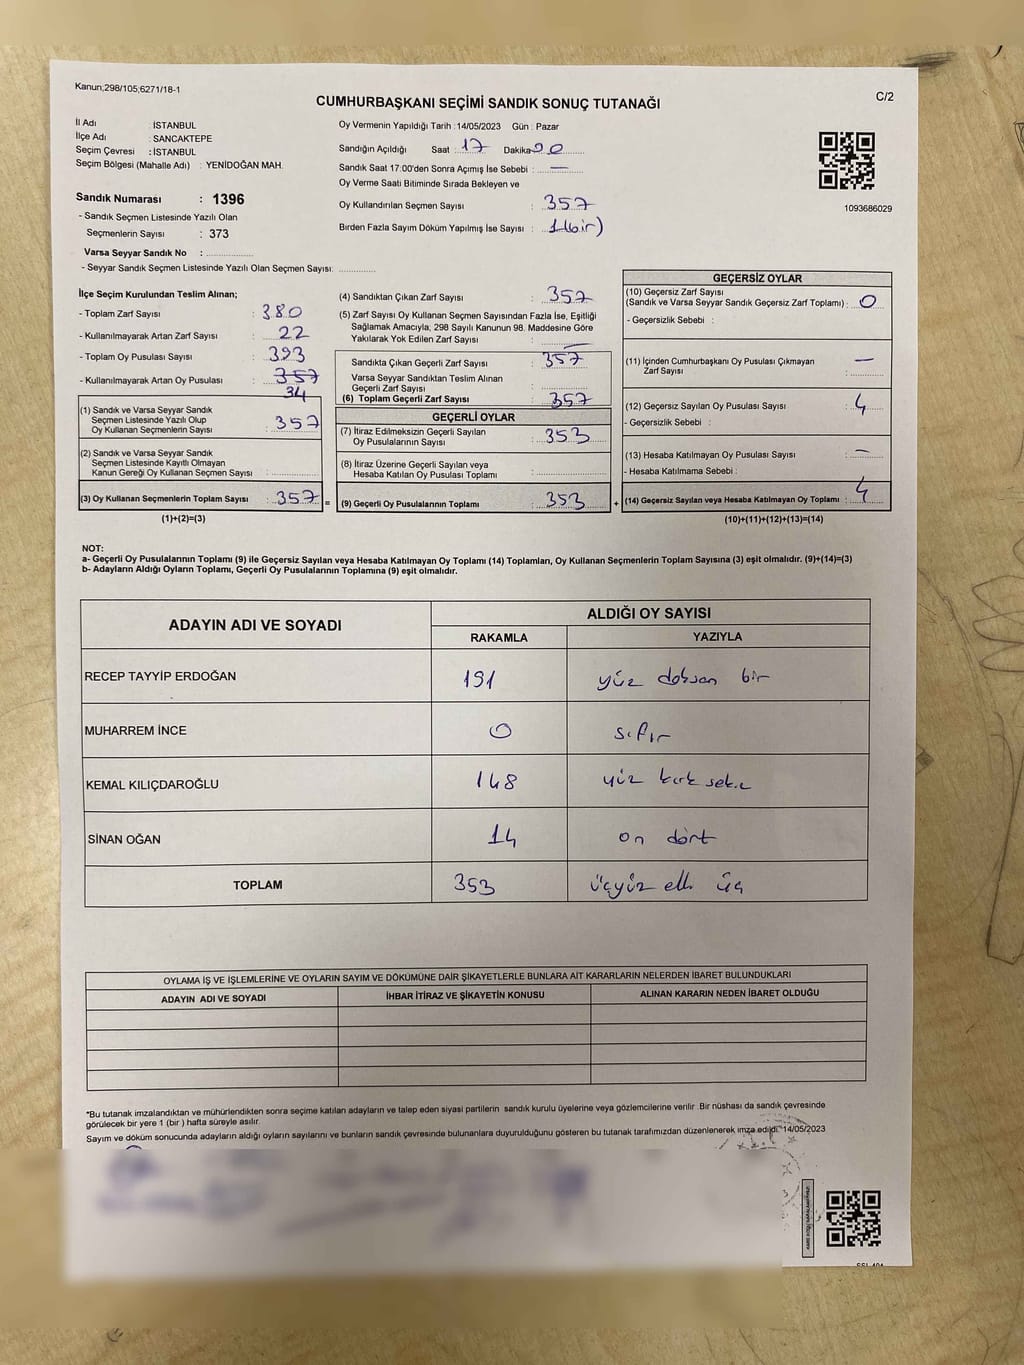 Kanun;298/105;6271/18-1
C/2
CUMHURBAŞKANI SEÇİMİ SANDIK SONUÇ TUTANAĞI
İl Adı : İSTANBUL
İlçe Adı : SANCAKTEPE
Seçim Çevresi : İSTANBUL
Seçim Bölgesi (Mahalle Adı) : YENİDOĞAN MAH.
Sandık Numarası : 1396
- Sandık Seçmen Listesinde Yazılı Olan
Seçmenlerin Sayısı : 373
Varsa Seyyar Sandık No : ................
- Seyyar Sandık Seçmen Listesinde Yazılı Olan Seçmen Sayısı: ............
Oy Vermenin Yapıldığı Tarih :14/05/2023 Gün : Pazar
Sandığın Açıldığı Saat : 17 Dakika
Sandık Saat 17:00'den Sonra Açımış İse Sebebi : —
Oy Verme Saati Bitiminde Sırada Bekleyen ve
Oy Kullandırılan Seçmen Sayısı : 357
Birden Fazla Sayım Döküm Yapılmış İse Sayısı : 1(bir)
1093686029
İlçe Seçim Kurulundan Teslim Alınan;
- Toplam Zarf Sayısı : 380
- Kullanılmayarak Artan Zarf Sayısı : 22
- Toplam Oy Pusulası Sayısı : 393
- Kullanılmayarak Artan Oy Pusulası : 357
34
(1) Sandık ve Varsa Seyyar Sandık
Seçmen Listesinde Yazılı Olup
Oy Kullanan Seçmenlerin Sayısı : 357
(2) Sandık ve Varsa Seyyar Sandık
Seçmen Listesinde Kayıtlı Olmayan
Kanun Gereği Oy Kullanan Seçmen Sayısı :
(3) Oy Kullanan Seçmenlerin Toplam Sayısı : 357 =
(1)+(2)=(3)
(4) Sandıktan Çıkan Zarf Sayısı : 357
(5) Zarf Sayısı Oy Kullanan Seçmen Sayısından Fazla İse, Eşitliği
Sağlamak Amacıyla; 298 Sayılı Kanunun 98. Maddesine Göre
Yakılarak Yok Edilen Zarf Sayısı : —
Sandıkta Çıkan Geçerli Zarf Sayısı : 357
Varsa Seyyar Sandıktan Teslim Alınan
Geçerli Zarf Sayısı :
(6) Toplam Geçerli Zarf Sayısı : 357
GEÇERLİ OYLAR
(7) İtiraz Edilmeksizin Geçerli Sayılan
Oy Pusulalarının Sayısı : 353
(8) İtiraz Üzerine Geçerli Sayılan veya
Hesaba Katılan Oy Pusulası Toplamı :
(9) Geçerli Oy Pusulalarının Toplamı : 353 +
GEÇERSİZ OYLAR
(10) Geçersiz Zarf Sayısı
(Sandık ve Varsa Seyyar Sandık Geçersiz Zarf Toplamı) : 0
- Geçersizlik Sebebi :
(11) İçinden Cumhurbaşkanı Oy Pusulası Çıkmayan
Zarf Sayısı : —
(12) Geçersiz Sayılan Oy Pusulası Sayısı : 4
- Geçersizlik Sebebi :
(13) Hesaba Katılmayan Oy Pusulası Sayısı : —
- Hesaba Katılmama Sebebi :
(14) Geçersiz Sayılan veya Hesaba Katılmayan Oy Toplamı : 4
(10)+(11)+(12)+(13)=(14)
NOT:
a- Geçerli Oy Pusulalarının Toplamı (9) ile Geçersiz Sayılan veya Hesaba Katılmayan Oy Toplamı (14) Toplamları, Oy Kullanan Seçmenlerin Toplam Sayısına (3) eşit olmalıdır. (9)+(14)=(3)
b- Adayların Aldığı Oyların Toplamı, Geçerli Oy Pusulalarının Toplamına (9) eşit olmalıdır.
ADAYIN ADI VE SOYADI
ALDIĞI OY SAYISI
RAKAMLA YAZIYLA
RECEP TAYYİP ERDOĞAN 191 yüz doksan bir
MUHARREM İNCE 0 sıfır
KEMAL KILIÇDAROĞLU 148 yüz kırk sekiz
SİNAN OĞAN 14 on dört
TOPLAM 353 üçyüz elli üç
OYLAMA İŞ VE İŞLEMLERİNE VE OYLARIN SAYIM VE DÖKÜMÜNE DAİR ŞİKAYETLERLE BUNLARA AİT KARARLARIN NELERDEN İBARET BULUNDUKLARI
ADAYIN ADI VE SOYADI İHBAR İTİRAZ VE ŞİKAYETİN KONUSU ALINAN KARARIN NEDEN İBARET OLDUĞU
*Bu tutanak imzalandıktan ve mühürlendikten sonra seçime katılan adayların ve talep eden siyasi partilerin sandık kurulu üyelerine veya gözlemcilerine verilir. Bir nüshası da sandık çevresinde
görülecek bir yere 1 (bir) hafta süreyle asılır.
Sayım ve döküm sonucunda adayların aldığı oyların sayılarını ve bunların sandık çevresinde bulunanlara duyurulduğunu gösteren bu tutanak tarafımızdan düzenlenerek imza edildi. 14/05/2023